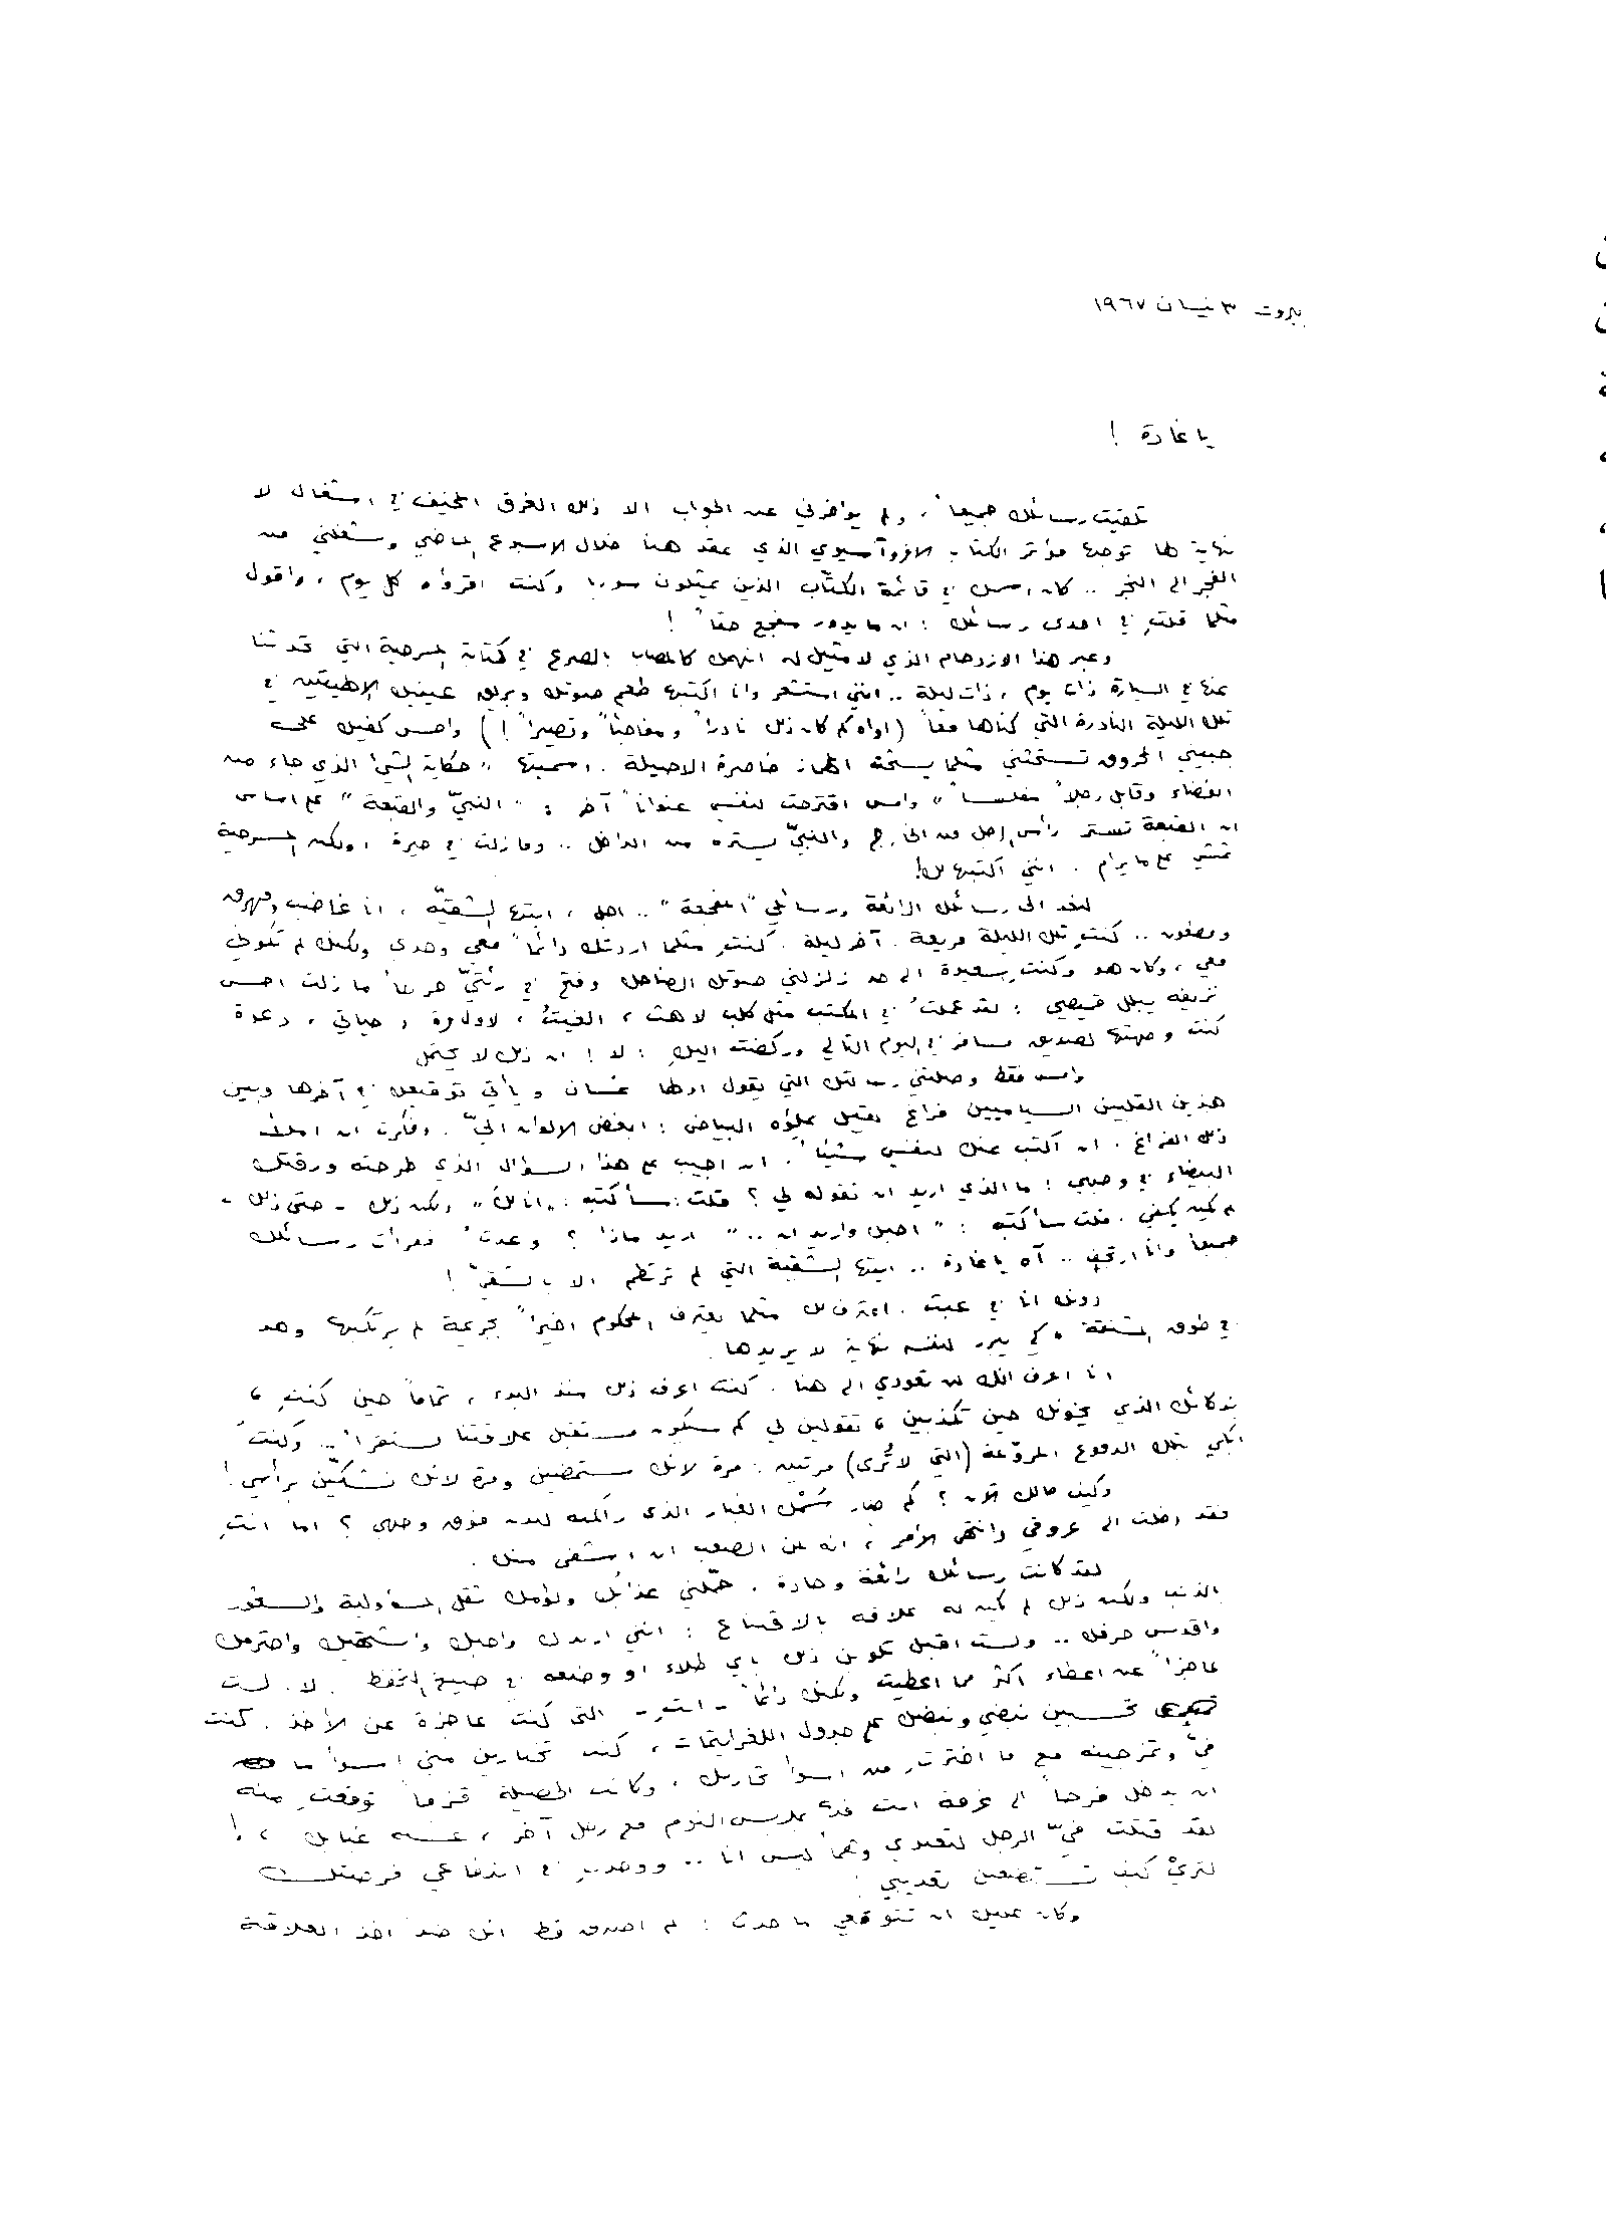 بيروت ٣ نيسان ١٩٦٧
يا غادة !
تلقيت رسائلك جميعاً ، ولم يؤخرني عن الجواب الا ذلك الغرق المخيف في اشغال لا
نهاية لها توجها مؤتمر الكتاب الافروآسيوي الذي عقد هنا خلال الاسبوع الماضي وشغلني من
الفجر الى الفجر .. كان اسمك في قائمة الكتّاب الذين يمثلون سوريا وكنت اقرؤه كل يوم ، واقول
مثلما قلتِ في احدى رسائلك : ان ما يدور مفجع حقاً !
وعبر هذا الازدحام الذي لا مثيل له انهمك كالمصاب بالصرع في كتابة المسرحية التي حدثتنا
عنها في السيارة ذات يوم ، ذات ليلة .. انني استشعر وانا اكتبها طعم صوتك وبريق عينيك الإ
تلك الليلة النادرة التي كناها معاً (اواه كم كان ذلك نادراً ومفاجئاً وقصيراً !) واحس كفيك على
جبيني المحروق تستحثني مثلما يستحث المهماز خاصرة الاصيلة . اسميتها " حكاية الشيء الذي جاء من
الفضاء وقابل رجلاً مفلساً " وامس اقترحت لنفسي عنواناً آخر : " النبيّ والقبعة " على اساس
ان القبعة تستر رأس الرجل من الخارج والنبيّ يستره من الداخل .. وما زلت في حيرة ، ولكن المسرحية
تمشي على ما يرام . انني اكتبها لك!
لنعد الى رسائلك الرائعة ورسائلي "المفجعة" .. اجل ، ايتها الشقيّة ، انا غاضب ومهووس
ومطعون .. كنتِ تلك الليلة مريعة . آخر ليلة . كنتِ مثلما اردتك دائماً معي وحدي ولكنك لم تكوني
معي ، وكان هو وكنتِ سعيدة الى حد زلزلني صوتك الضاحك وفتح في رئتيّ جرحاً ما زلت احس
نزيفه يبلل قميصي : لقد عملتُ في المكتب مثل كلب لاهث ، الغيتُ ، لاول مرة ، حياتي ، دعوة
كنت وجهتها لصديق مسافر في اليوم التالي وركضت اليكِ : لا ! ان ذلك لا يحتمل
وامس فقط وصلتني رسالتك التي يقول اولها غسان ويأتي توقيعك في آخرها وبين
هذين القلبين السياميين فراغ ثقيل يملؤه البياض : ابغض الالوان اليّ . وفكرت ان املأ
ذلك الفراغ ، ان اكتب عنك لنفسي شيئاً ، ان اجيب على هذا السؤال الذي طرحته ورقتك
البيضاء في وجهي : ما الذي اريد ان تقوله لي ؟ قلت : سأكتب : "انا لكَ" ولكن ذلك - حتى ذلك -
لم يكن يكفي . قلت سأكتب : " احبك واريد ان .. " اريد ماذا ؟ وعدتُ فقرأت رسائلك
جميعاً وانا ارتجف .. آه يا غادة .. ايتها الشقية التي لم ترتطم الا بالشقيّ !
دونك انا في عبث . اعترف لك مثلما يعترف المحكوم اخيراً بجريمة لم يرتكبها وهو
في طوق المشنقة ، كي يبرر لنفسه نهاية لا يريدها .
انا اعرف انك لن تعودي الى هنا . كنت اعرف ذلك منذ البدء ، تماماً حين كنتِ ،
بذكائك الذي يخونك حين تكذبين ، تقولين لي كم سيكون مستقبل علاقتنا مستقراً .. وكنتُ
ابكي بتلك الدموع المروّعة (التي لا تُرى) مرتين : مرة لانك ستمضين ومرة لانك تشكّين برأسي !
وكيف حالك الآن ؟ كم صار سُمْك الغبار الذي راكمته لندن فوق وجهي ؟ اما انتِ
فقد دخلت الى عروقي وانتهى الأمر ، انه لمن الصعب ان اشفى منك .
لقد كانت رسائلك رائعة وحادة . حمّلني عذابُك ولؤمك ثقل المسؤولية والشعور
بالذنب ولكن ذلك لم يكن له علاقة بالاقتناع : انني اريدك واحبك واشتهيك واحترمك
واقدس حرفك .. ولست اقبل تلوين ذلك بأي طلاء او وضعه في صيغ التحفظ . لا . لست
عاجزاً عن اعطاء اكثر مما اعطيت ولكنك دائماً - انتِ - التي كنت عاجزة عن الأخذ . كنت
تحسبين نبضي ونبضك على جدول اللغرايتمات ، كنت تختارين مني اسوأ ما
فيّ وتمزجينه مع ما اخترت من اسوأ تجاربك ، وكانت الحصيلة قزماً توقعتِ منه
ان يدخل فرحاً الى غرفة انت فيها بملابس النوم مع رجل آخر ، عنه غيابك ، !
لقد قتلت فيّ الرجل لتعبدي وهماً ليس انا .. ووجدتِ في اندفاعي فرصتك
لتريْ كيف تستطيعين تعذيبي !
وكان عليك ان تتوقعي ما حدث : لم اصدق قط انك ضد اخذ العلاقة